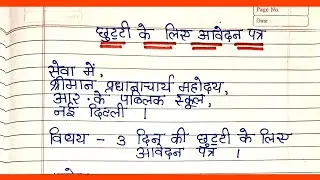 Page No.
Date
छुट्टी के लिए आवेदन पत्र
सेवा में,
श्रीमान् प्रधानाचार्य महोदय,
आर. के पब्लिक स्कूल,
नई दिल्ली ।
विषय - 3 दिन की छुट्टी के लिए
आवेदन पत्र ।